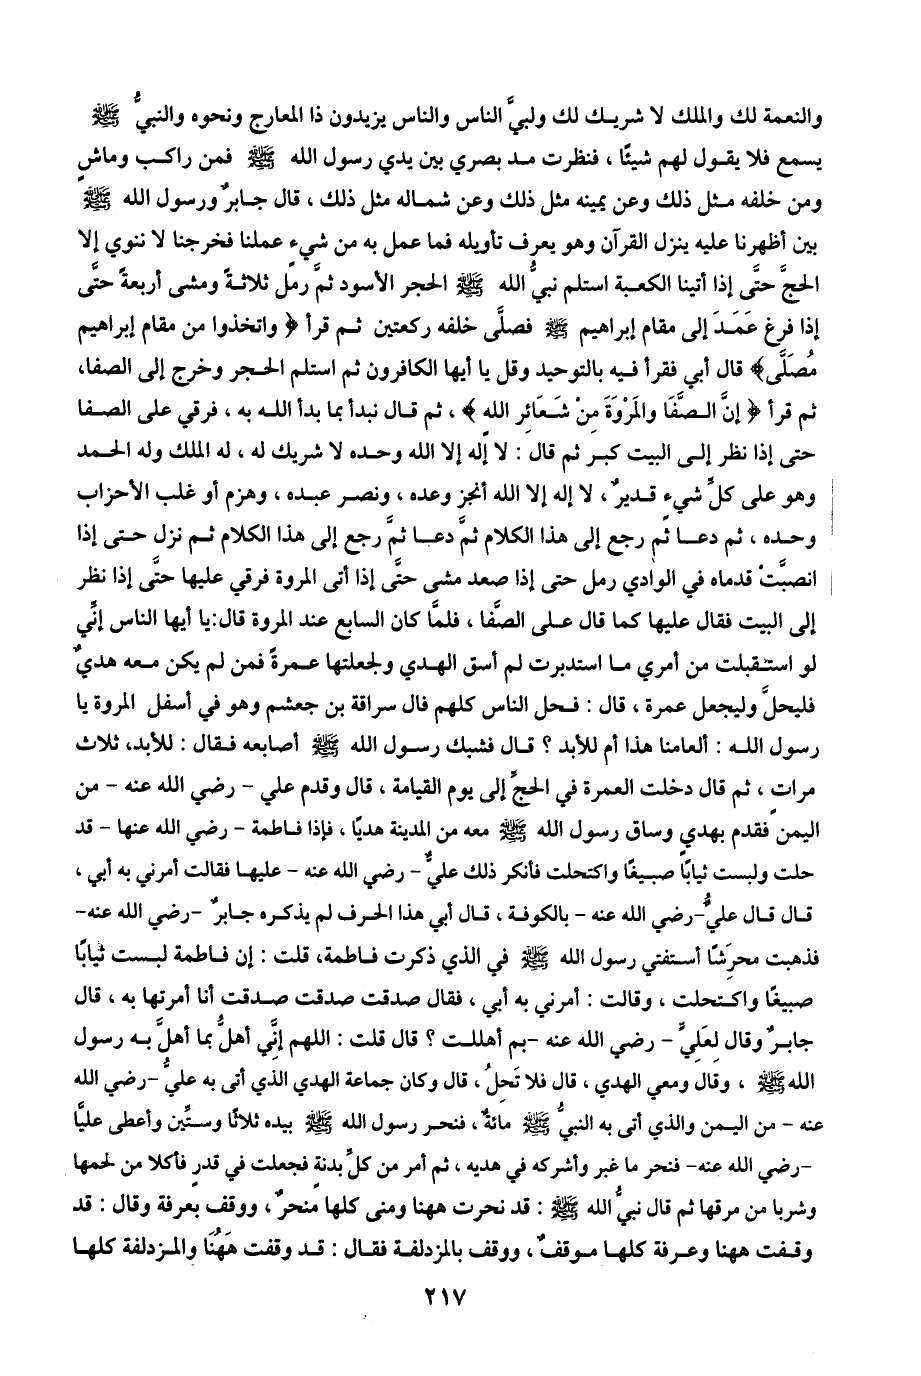 والنعمة لك والملك لا شريك لك ولبيَّ الناس والناس يزيدون ذا المعارج ونحوه والنبيُّ ﷺ
يسمع فلا يقول لهم شيئًا ، فنظرت مد بصري بين يدي رسول الله ﷺ فمن راكب وماشٍ
ومن خلفه مثل ذلك وعن يمينه مثل ذلك وعن شماله مثل ذلك ، قال جابرٌ ورسول الله ﷺ
بين أظهرنا عليه ينزل القرآن وهو يعرف تأويله فما عمل به من شيءٍ عملنا فخرجنا لا ننوي إلا
الحجَّ حتَّى إذا أتينا الكعبة استلم نبيُّ الله ﷺ الحجر الأسود ثمَّ رمل ثلاثةً ومشى أربعةً حتَّى
إذا فرغ عَمَدَ إلى مقام إبراهيم ﷺ فصلَّى خلفه ركعتين ثم قرأ ﴿ واتخذوا من مقام إبراهيم
مُصَلَّى﴾ قال أبي فقرأ فيه بالتوحيد وقل يا أيها الكافرون ثم استلم الحجر وخرج إلى الصفا،
ثم قرأ ﴿ إنَّ الصفَّا والمَرْوَةَ مِنْ شَعَائِرِ الله ﴾ ، ثم قال نبدأ بما بدأ الله به ، فرقي على الصفا
حتى إذا نظر إلى البيت كبر ثم قال : لا إله إلا الله وحده لا شريك له ، له الملك وله الحمد
وهو على كلِّ شيءٍ قديرٌ ، لا إله إلا الله أنجز وعده ، ونصر عبده ، وهزم أو غلب الأحزاب
وحده ، ثم دعا ثم رجع إلى هذا الكلام ثمَّ دعا ثمَّ رجع إلى هذا الكلام ثم نزل حتى إذا
انصبَّتْ قدماه في الوادي رمل حتى إذا صعد مشى حتَّى إذا أتى المروة فرقي عليها حتَّى إذا نظر
إلى البيت فقال عليها كما قال على الصَّفا ، فلمَّا كان السابع عند المروة قال:يا أيها الناس إنِّي
لو استقبلت من أمري ما استدبرت لم أسق الهدي ولجعلتها عمرةً فمن لم يكن معه هديٌ
فليحلَّ وليجعل عمرة ، قال : فحل الناس كلهم فال سراقة بن جعشم وهو في أسفل المروة يا
رسول الله : ألعامنا هذا أم للأبد ؟ قال فشبك رسول الله ﷺ أصابعه فقال : للأبد، ثلاث
مراتٍ ، ثم قال دخلت العمرة في الحجِّ إلى يوم القيامة ، قال وقدم علي - رضي الله عنه - من
اليمن فقدم بهدي وساق رسول الله ﷺ معه من المدينة هديًا ، فإذا فاطمة - رضي الله عنها - قد
حلت ولبست ثيابًا صبيغًا واكتحلت فأنكر ذلك عليٌّ - رضي الله عنه - عليها فقالت أمرني به أبي ،
قال قال عليٌّ-رضي الله عنه - بالكوفة ، قال أبي هذا الحرف لم يذكره جابرٌ -رضي الله عنه-
فذهبت محرشًا أستفتي رسول الله ﷺ في الذي ذكرت فاطمة، قلت : إن فاطمة لبست ثيابًا
صبيغًا واكتحلت ، وقالت : أمرني به أبي ، فقال صدقت صدقت صدقت أنا أمرتها به ، قال
جابرٌ وقال لِعَلِيٍّ - رضي الله عنه -بم أهللت ؟ قال قلت : اللهم إنَّي أهلُّ بما أهلَّ به رسول
اللهﷺ ، وقال ومعي الهدي ، قال فلا تَحلُ ، قال وكان جماعة الهدي الذي أتى به عليٌّ -رضي الله
عنه - من اليمن والذي أتى به النبيُّ ﷺ مائةٌ ، فنحر رسول الله ﷺ بيده ثلاثًا وستِّين وأعطى عليًّا
-رضي الله عنه- فنحر ما غبر وأشركه في هديه ، ثم أمر من كلِّ بدنة فجعلت في قدرٍ فأكلا من لحمها
وشربا من مرقها ثم قال نبيُّ الله ﷺ : قد نحرت ههنا ومنى كلها منحرٌ ، ووقف بعرفة وقال : قد
وقفت ههنا وعرفة كلها موقفٌ ، ووقف بالمزدلفة فقال : قد وقفت هَهُنَا والمزدلفة كلها
٢١٧